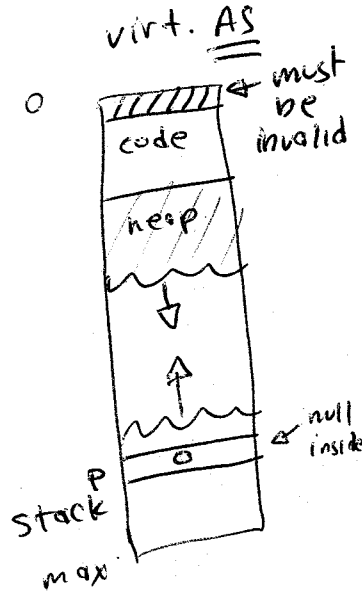 virt. AS
0
must
be
invalid
code
heap
null
inside
0
P
stack
max